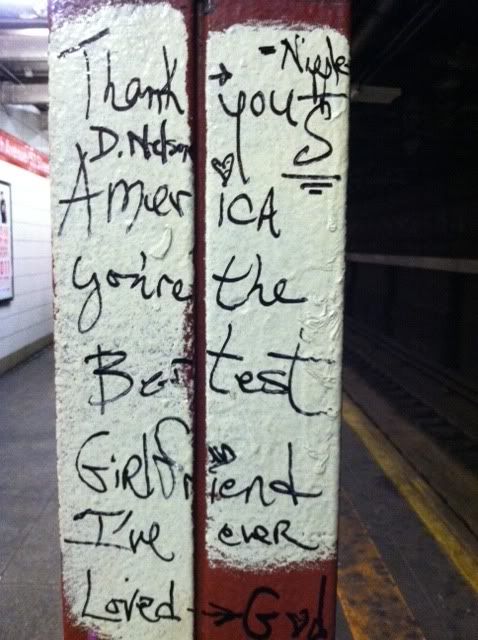 Thank → you
D. Nelson
AmerICA
you're the
Bestest
Girlfriend
I've ever
Loved → God